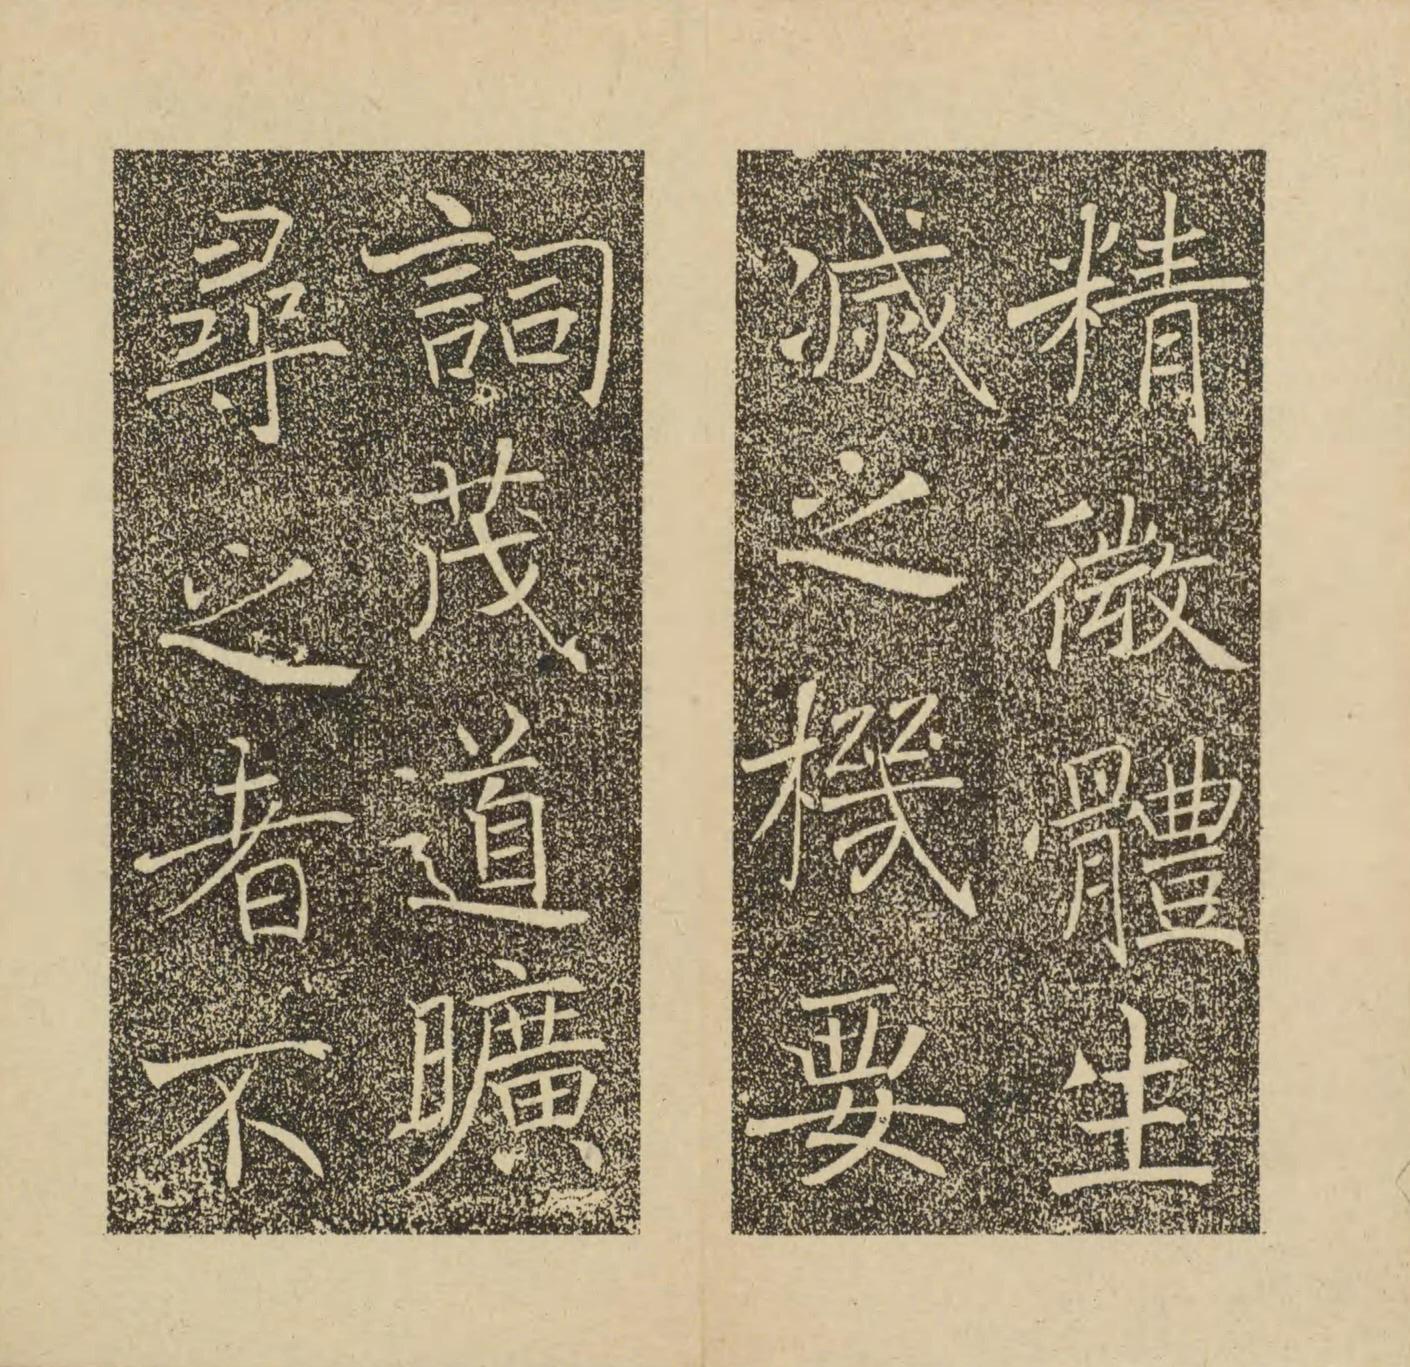 精微體生
滅之機要
詞茂道曠
尋之者不